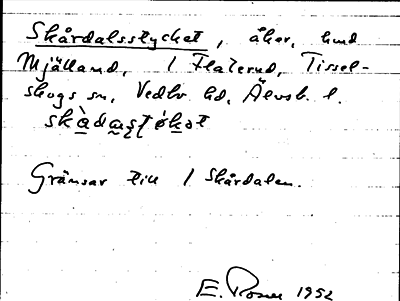 Skårdalsstycket, åker, hmd
Mjälland, 1 Flaterud, Tissel-
skogs sn, Vedbo hd, Älvsb. l.
Gränsar till 1 Skårdalen.
E. Rosen 1952